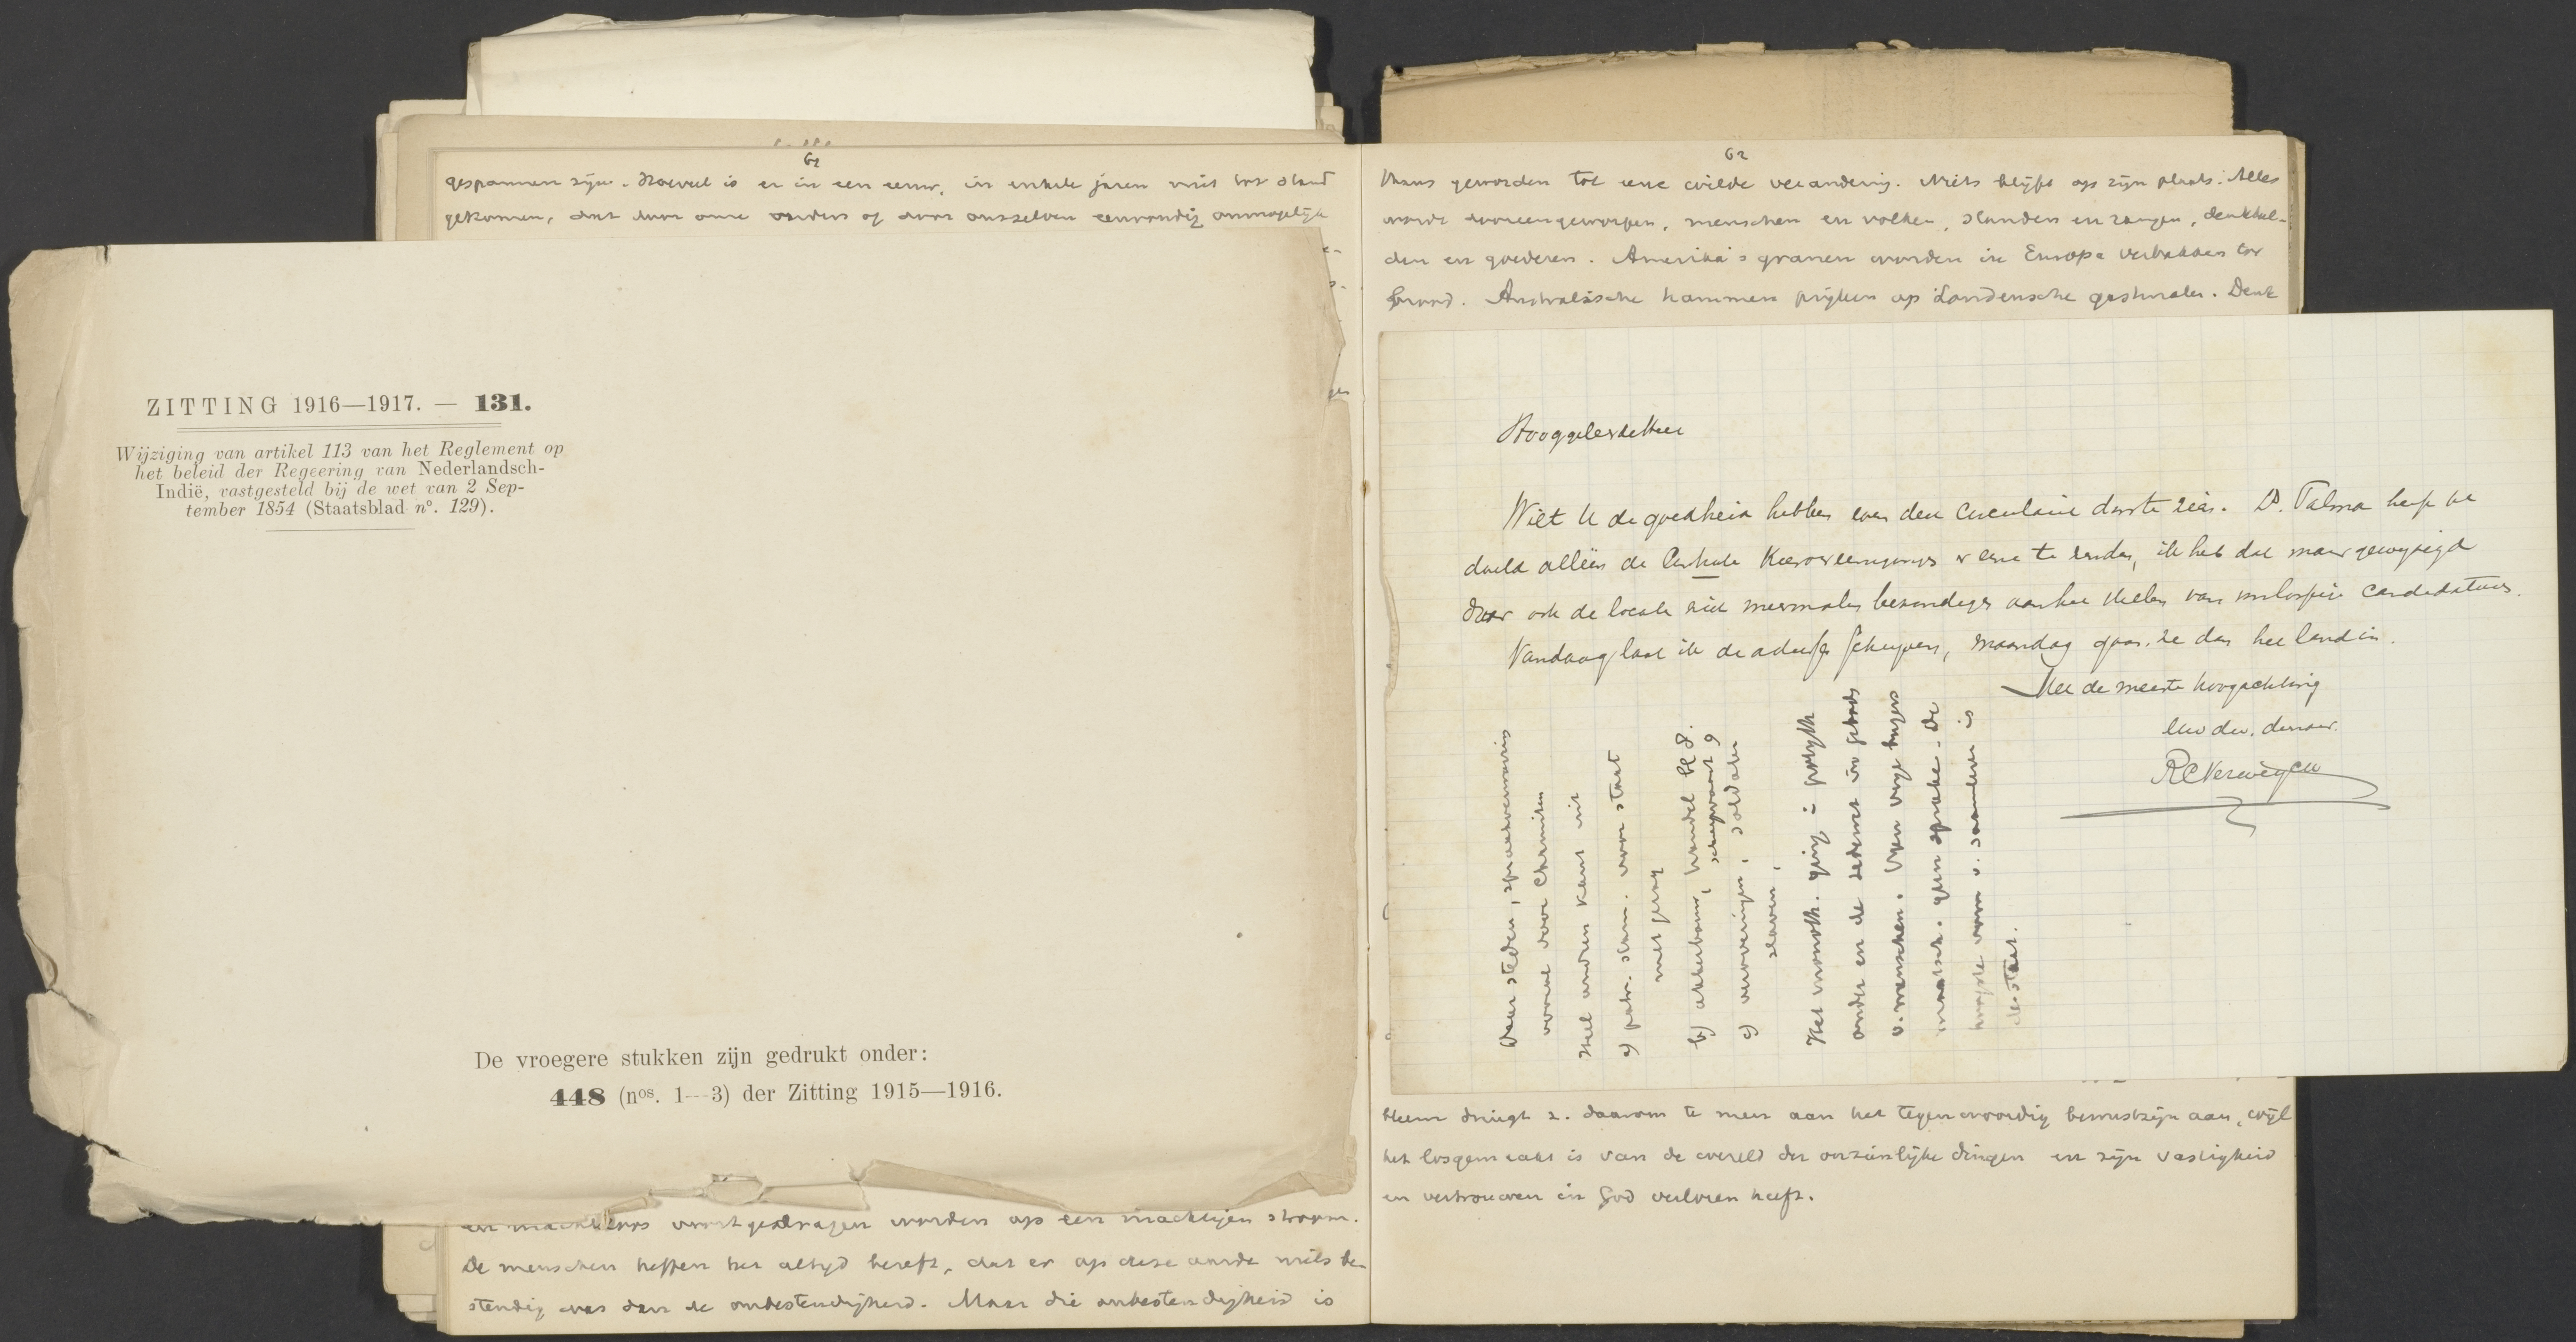 61
gespannen zijn. Hoeveel is er in een eeuw, in enkele jaren niet tot stand
gekomen, dat door onze ouders of door onszelven eenvoudig onmogelijk
ZITTING 1916—1917. — 131.
Wijziging van artikel 113 van het Reglement op
het beleid der Regeering van Nederlandsch-
Indië, vastgesteld bij de wet van 2 Sep-
tember 1854 (Staatsblad n°. 129).
De vroegere stukken zijn gedrukt onder:
448 (nos. 1—3) der Zitting 1915—1916.
en machteloos voortgedragen worden op een machtigen stroom.
De menschen heffen het altijd beseft, dat er op deze aarde niets be-
stendig was dan de onbestendigheid. Maar die onbestendigheid is
62
thans geworden tot eene wilde verandering. Niets blijft op zijn plaats. Alles
wordt dooreengeworpen, menschen en volken, standen en rangen, denkbeel-
den en goederen. Amerika's granen worden in Europa verbakken tot
brood. Australische hammen prijken op Londensche gastmalen. Denk
Hooggeleerde Heer
Wilt U de goedheid hebben even den circulaire door te zien. Ds. Talma heeft be
doeld alléén de Centrale Kiesvereenigingen er eene te zenden, ik heb dat maar gewijzigd
daar ook de locale zich meermalen bezondigen aan het stellen van voorloopige candidaturen.
Vandaag laat ik de adressen schrijven, maandag gaan ze dan het land in.
Met de meeste hoogachting
Uw dw. dienaar
RC Verweyen
Over steden, spraakverwarring
vooral voor Christen
Heel andren kant uit
a) patr. stam. voor staat
niet genoeg
b) akkerbouw, handel bl 8.
scheepvaart 9
c) veroveringen, soldaten
slaven,
Het vroolk. ging
onder en de
v. menschen. Geen vrije burgers
maatsch. geen sprake. De
hoogste vorm v. samenlev. is
de staat.
daarom te meer aan het tegenwoordig bewustzijn aan, wijl
het losgemaakt is van de wereld der onzienlijke dingen en zijn vastigheid
en vertrouwen in God verloren heeft.